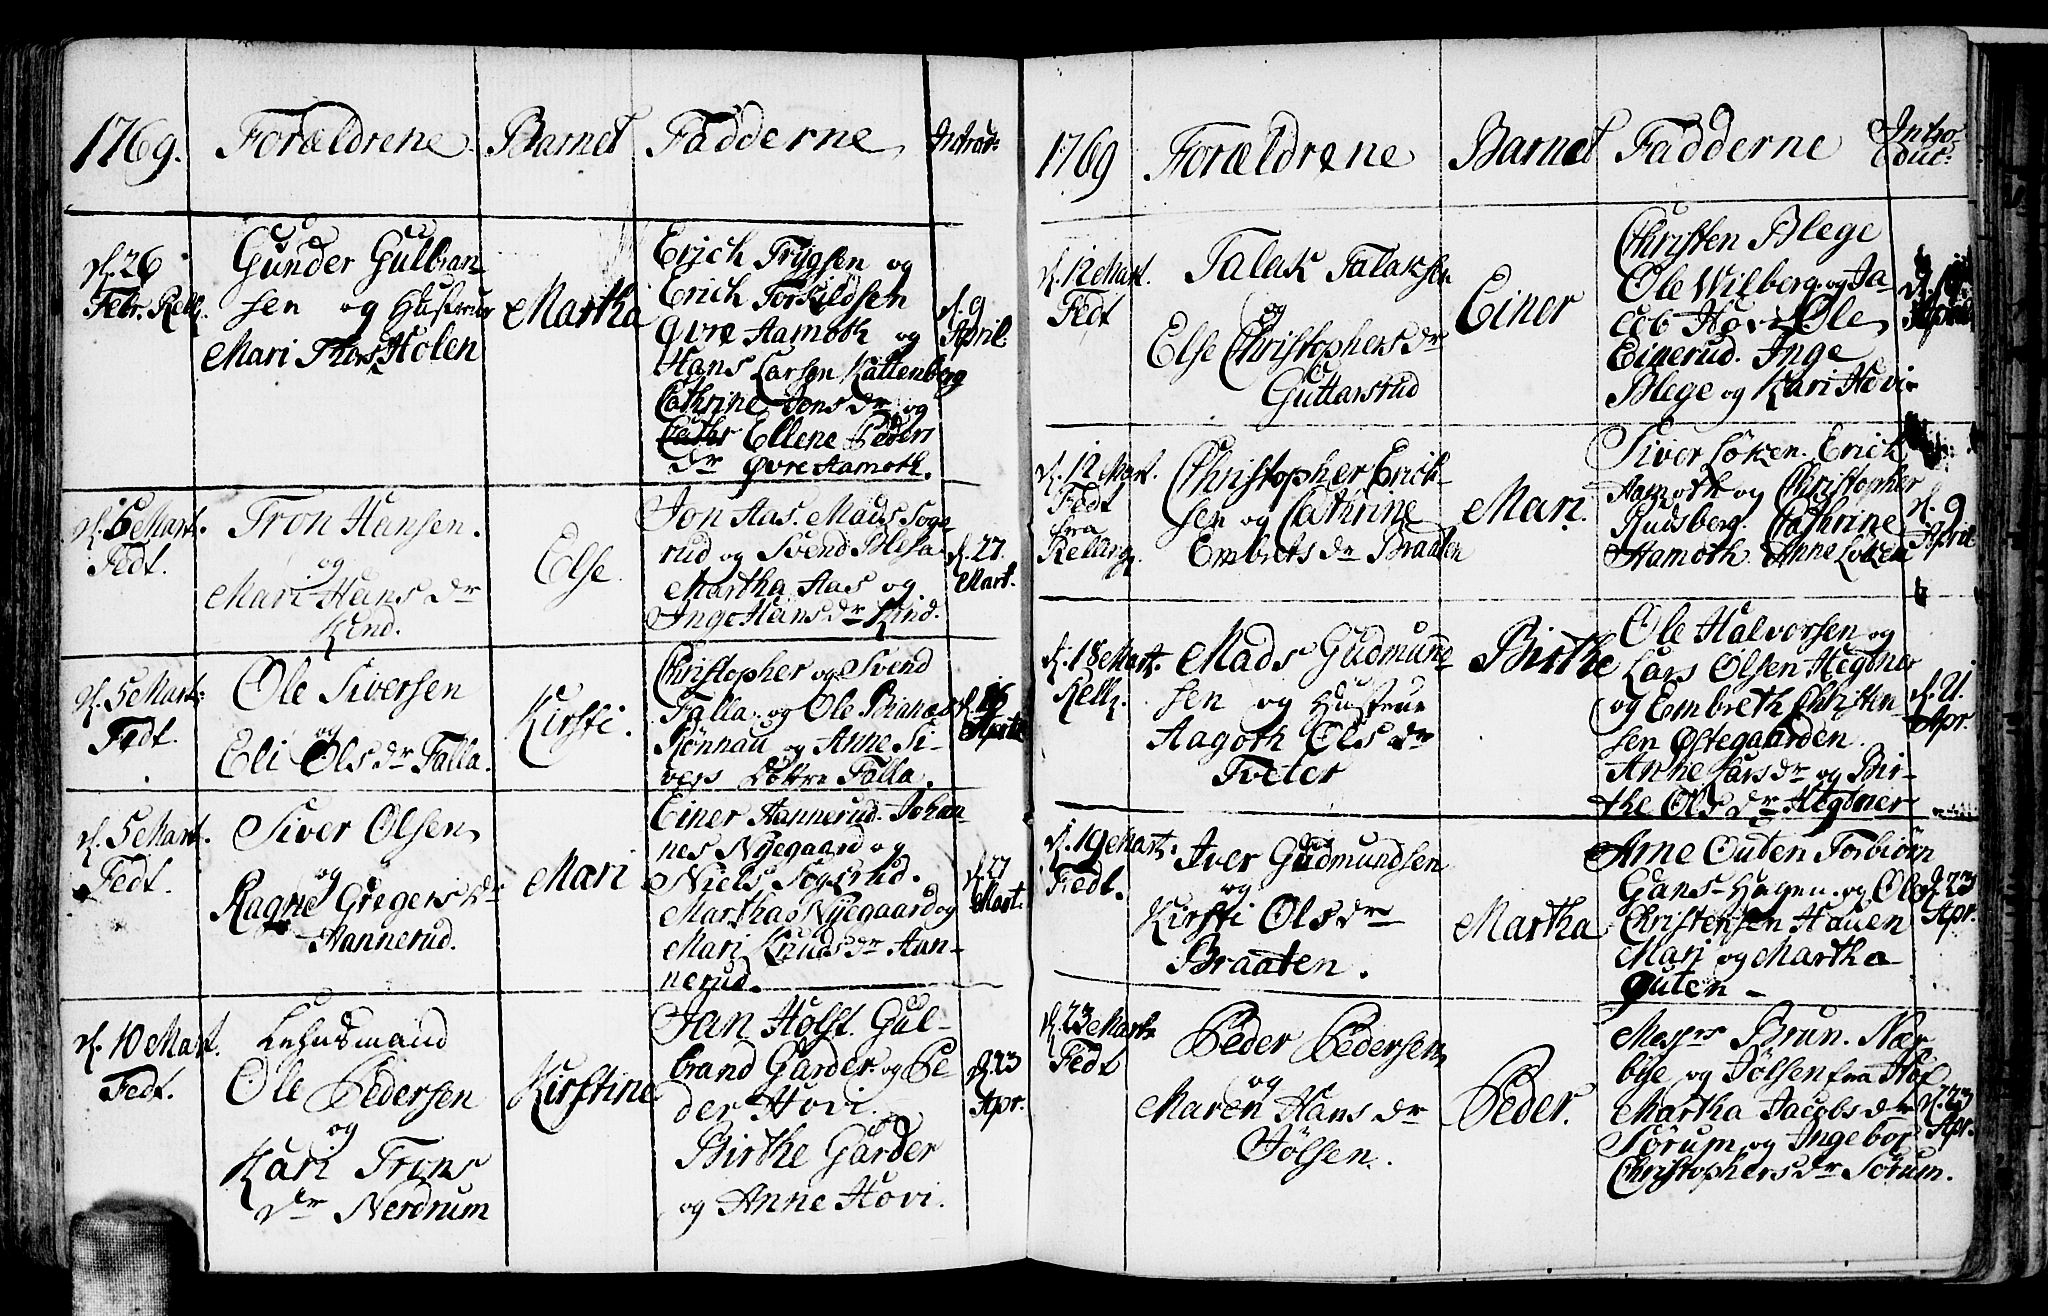 1769.
Forældrene
Barnet
Fadderne
Introd:
d. 26
Febr. Rell.
Gunder Gulbran-
sen og Hustrue
Mari Thors Holen
Martha
Erich Trygsen og
Erich Torkildsen
Øvre Aamoth og
Hans Larsen Kattenberg
Cathrine Jens dr og
Cathr Ellene Peders
dr Øvre Aamoth.
d. 9
April.
d. 5 Mart.
Fedt.
Tron Hansen.
og
Mari Hans dr
Kind.
Else.
Jon Aas. Mads Sogs-
rud og Svend Blesa
Martha Aas og
Inge Hans dr Kind.
d. 27.
Mart.
d. 5 Mart:
Fedt.
Ole Siversen
og
Eli Ols dr Falla.
Kirsti.
Christopher og Svend
Falla og Ole Bianæs
Rønnau og Anne Si-
vers Døttre Falla.
d. 16
April
d. 5 Mart.
Fedt.
Siver Olsen
og
Ragne Gregers dr
Aannerud.
Mari
Einer Aannerud. Johan-
nes Nyegaard og
Niels Sogsrud.
Martha Nyegaard og
Mari Knuds dr Aan-
nerud.
d. 27
Mart.
d. 10 Mart.
Fedt.
Lehnsmand
Ole Pedersen
og
Kari Trons
dr Nerdrum
Kirstine
Jan Holst. Gul-
brand Garder og Pe-
der Hovi.
Birthe Garder
og Anne Hovi.
d. 23
Apr.
1769
Forældrene
Barnet
Fadderne
Intro-
duc:
d. 12 Mart.
Fedt
Talak Talaksen
og
Else Christophers dr
Guttarsrud
Einer
Christen Blege
Ole Wilberg og Ja-
cob Hovi Ole
Eigerud. Inge
Blege og Kari Hovi-
April
d. 12 Mart.
Fedt
fra
Relling
Christopher Erick-
sen og Cathrine
Embrets dr Braaten
Mari.
Siver Løken. Erick
Aamoth og Christopher
Rudsberg. Cathrine
Aamoth. Anne Løken
d. 9
April
d. 18 Mart.
Rell.
Mads Gudmund-
sen og Hustrue
Aagoth Ols dr
Tveter
Birthe
Ole Halvorsen og
Lars Olsen Hegtner
og Embreth Christen
sen Østegaarden.
Anne Lars dr og Bir-
the Ols dr Hegtner
d. 21.
Apr.
d. 19 Mart.
Fedt.
Iver Gudmundsen
og
Kirsti Ols dr
Braaten.
Martha
Arne Outen Torbiørn
Gans-Hagen. og Ole
Christensen Hauen
Mari og Martha
Outen-
d. 23
Apr.
d. 23 Mart:
Fedt
Peder Pedersen
og
Maren Hans dr
Jølsen.
Peder.
Mesrs Brun. Nær-
bye og Jølsen fra Hof
Martha Jacobs dr
Sørum og Ingebor
Christophers dr Sørum.
d. 23
Apr.